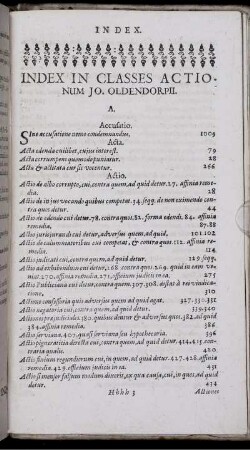 INDEX.
INDEX IN CLASSES ACTIO-
NUM JO. OLDENDORPII.
A.
Accusatio.
Sine accusatione nemo condemnandus. 1009
Acta.
Acta edenda cuilibet, cujus interest. 79
Acta corrumpens quomodo puniatur. 28
Acta & actitata cur sic vocentur. 266
Actio.
Actio de albo corrupto, cui, contra quem, ad quid detur. 27. affinia reme-
dia. 28
Actio de in jus vocando quibus competat. 34. seqq. de non eximendo con-
tra quos detur. 44
Actio de edendo cui detur. 78. contra quos. 82. forma edendi. 84. affinia
remedia. 87.88
Actio jurisjurandi cui detur, adversus quem, ad quid. 101.102
Actio de calumniatoribus cui competat, & contra quos. 112. affinia re-
media. 114
Actio publicati cui, contra quem, ad quid detur. 129. seqq.
Actio ad exhibendum cui detur. 268. contra quos. 269. quid in eam ve-
niat. 270. affinia remedia. 271. officium judicis in ea. 273
Actio Publiciana cui detur, contra quem. 307.308. distat à rei vindica-
tione. 310
Actio confessoria quis adversus quem ad quid agat. 327.331.332
Actio negatoria cui, contra quem, ad quid detur. 339.340
Actiones præjudiciales. 380. quibus dentur & adversus quos. 382. ad quid
384. affinia remedia. 386
Actio serviana. 407. quasi serviana seu hypothecaria. 396
Actio pigneratitia directa cui, contra quem, ad quid detur. 414.415. con-
traria qualis. 420
Actio finium regundorum cui, in quem, ad quid detur. 427.428. affinia
remedia. 429. officium judicis in ea. 431
Actio si mensor falsum modum dixerit, ex qua causa, cui, in quos, ad quid
datur. 434
Hhhh 3
Actiones